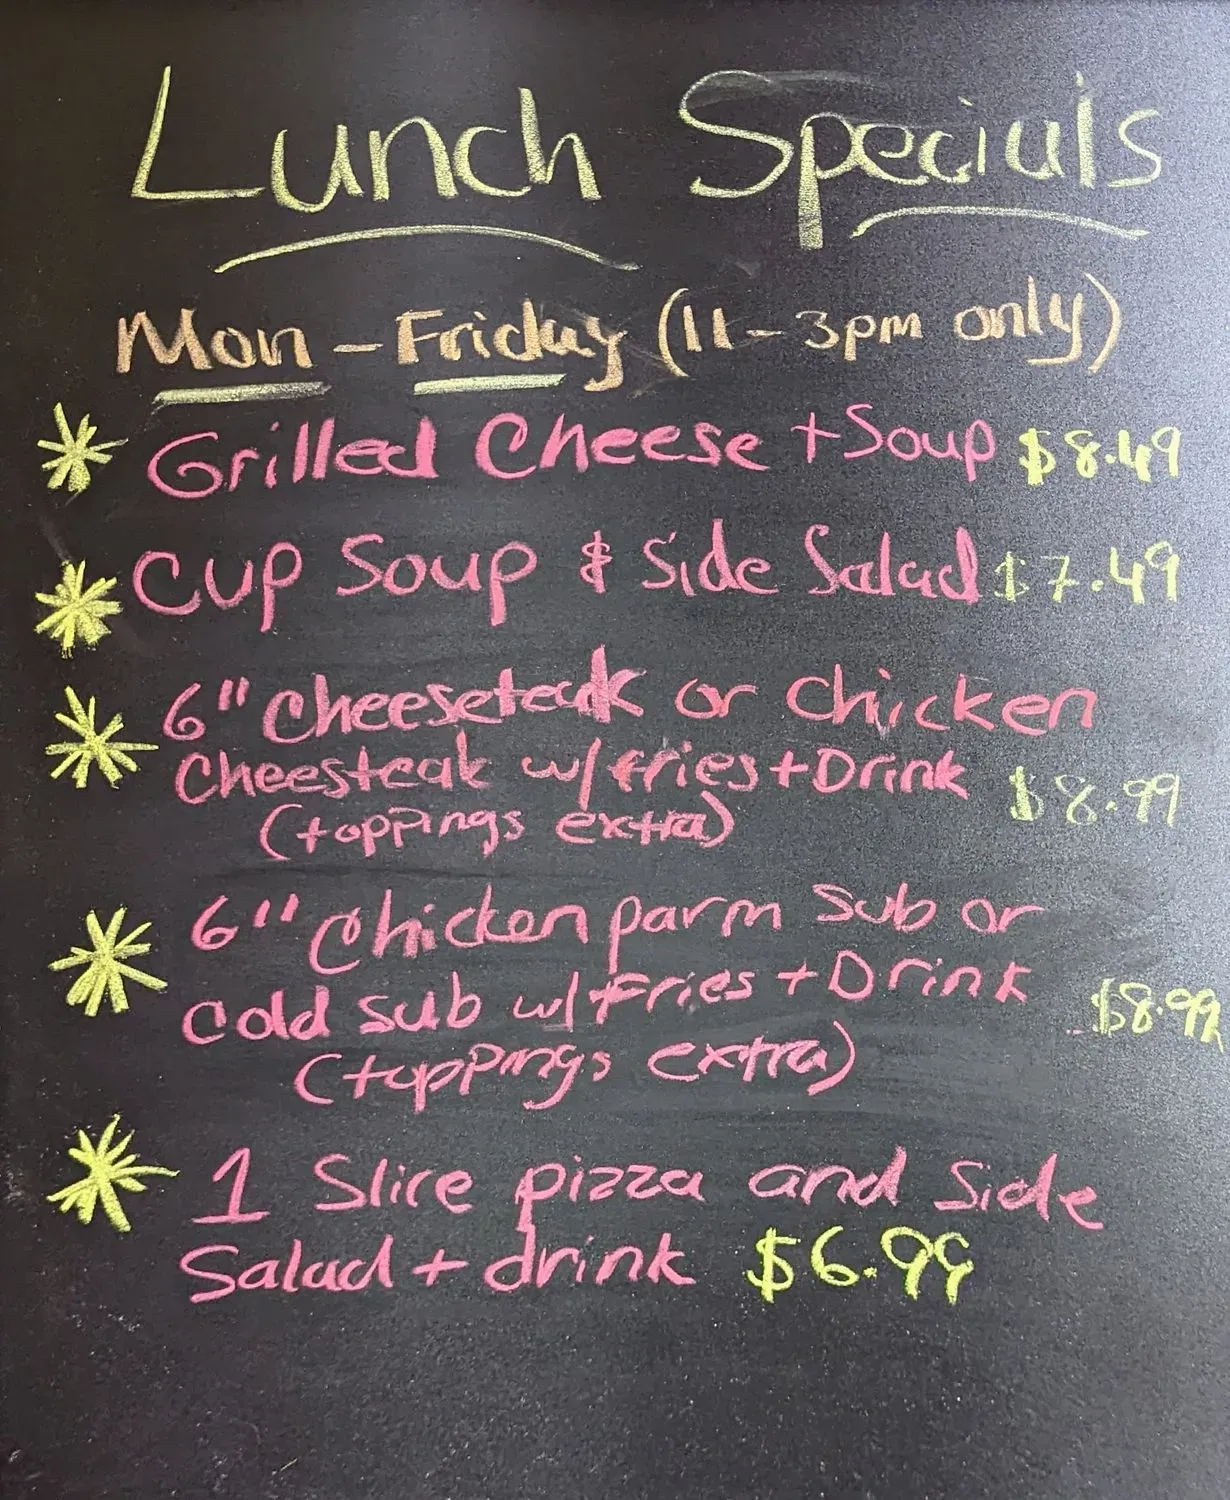 Lunch Specials
Mon - Friday (11-3pm only)
Grilled Cheese + Soup $8.49
Cup Soup & Side Salad $7.49
6" Cheeseteak or Chicken
Cheesteak w/ fries + Drink $8.99
(toppings extra)
6" Chicken parm Sub or
Cold sub w/ Fries + Drink $8.99
(toppings extra)
1 Slice pizza and Side
Salad + drink $6.99